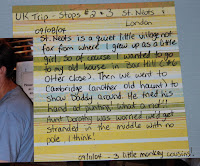 UK Trip - Stops #2 & 3 St. Neots &
London
09/08/04
St. Neots is a quiet little village not
far from where I grew up as a little
girl so of course I wanted to go
to my old house in Bar Hill (45
Otter Close). Then we went to
Cambridge (another old haunt) to
show Daddy around. He tried his
hand at punting! What a riot!!
Aunt Dorothy was worried we'd get
stranded in the middle with no
pole, I think!
09/11/04 - 3 little monkey cousins!